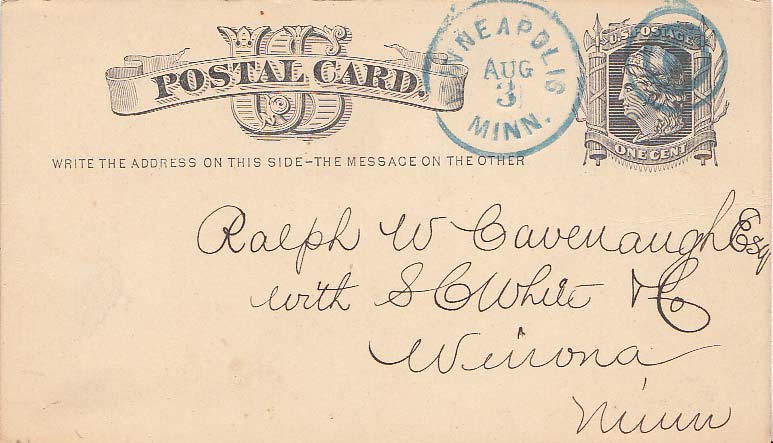 US
POSTAL CARD.
WRITE THE ADDRESS ON THIS SIDE–THE MESSAGE ON THE OTHER
NNEAPOLIS
AUG
31
MINN.
U.S. POSTAGE
ONE CENT
Ralph W Cavenaugh Esq
with S C White & Co
Winona
Minn